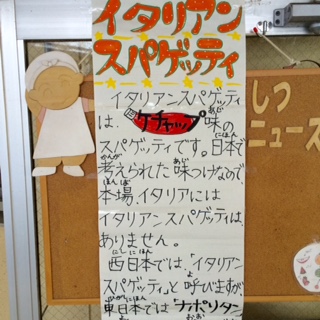 イタリアン
スパゲッティ
イタリアンスパゲッティ
は、ケチャップ味の
スパゲッティです。日本で
考えられた味つけなので、
本場、イタリアには
イタリアンスパゲッティは、
ありません。
西日本では、「イタリアン
スパゲッティ」と呼びますが、
東日本では「ナポリタン
しつ
ニュース